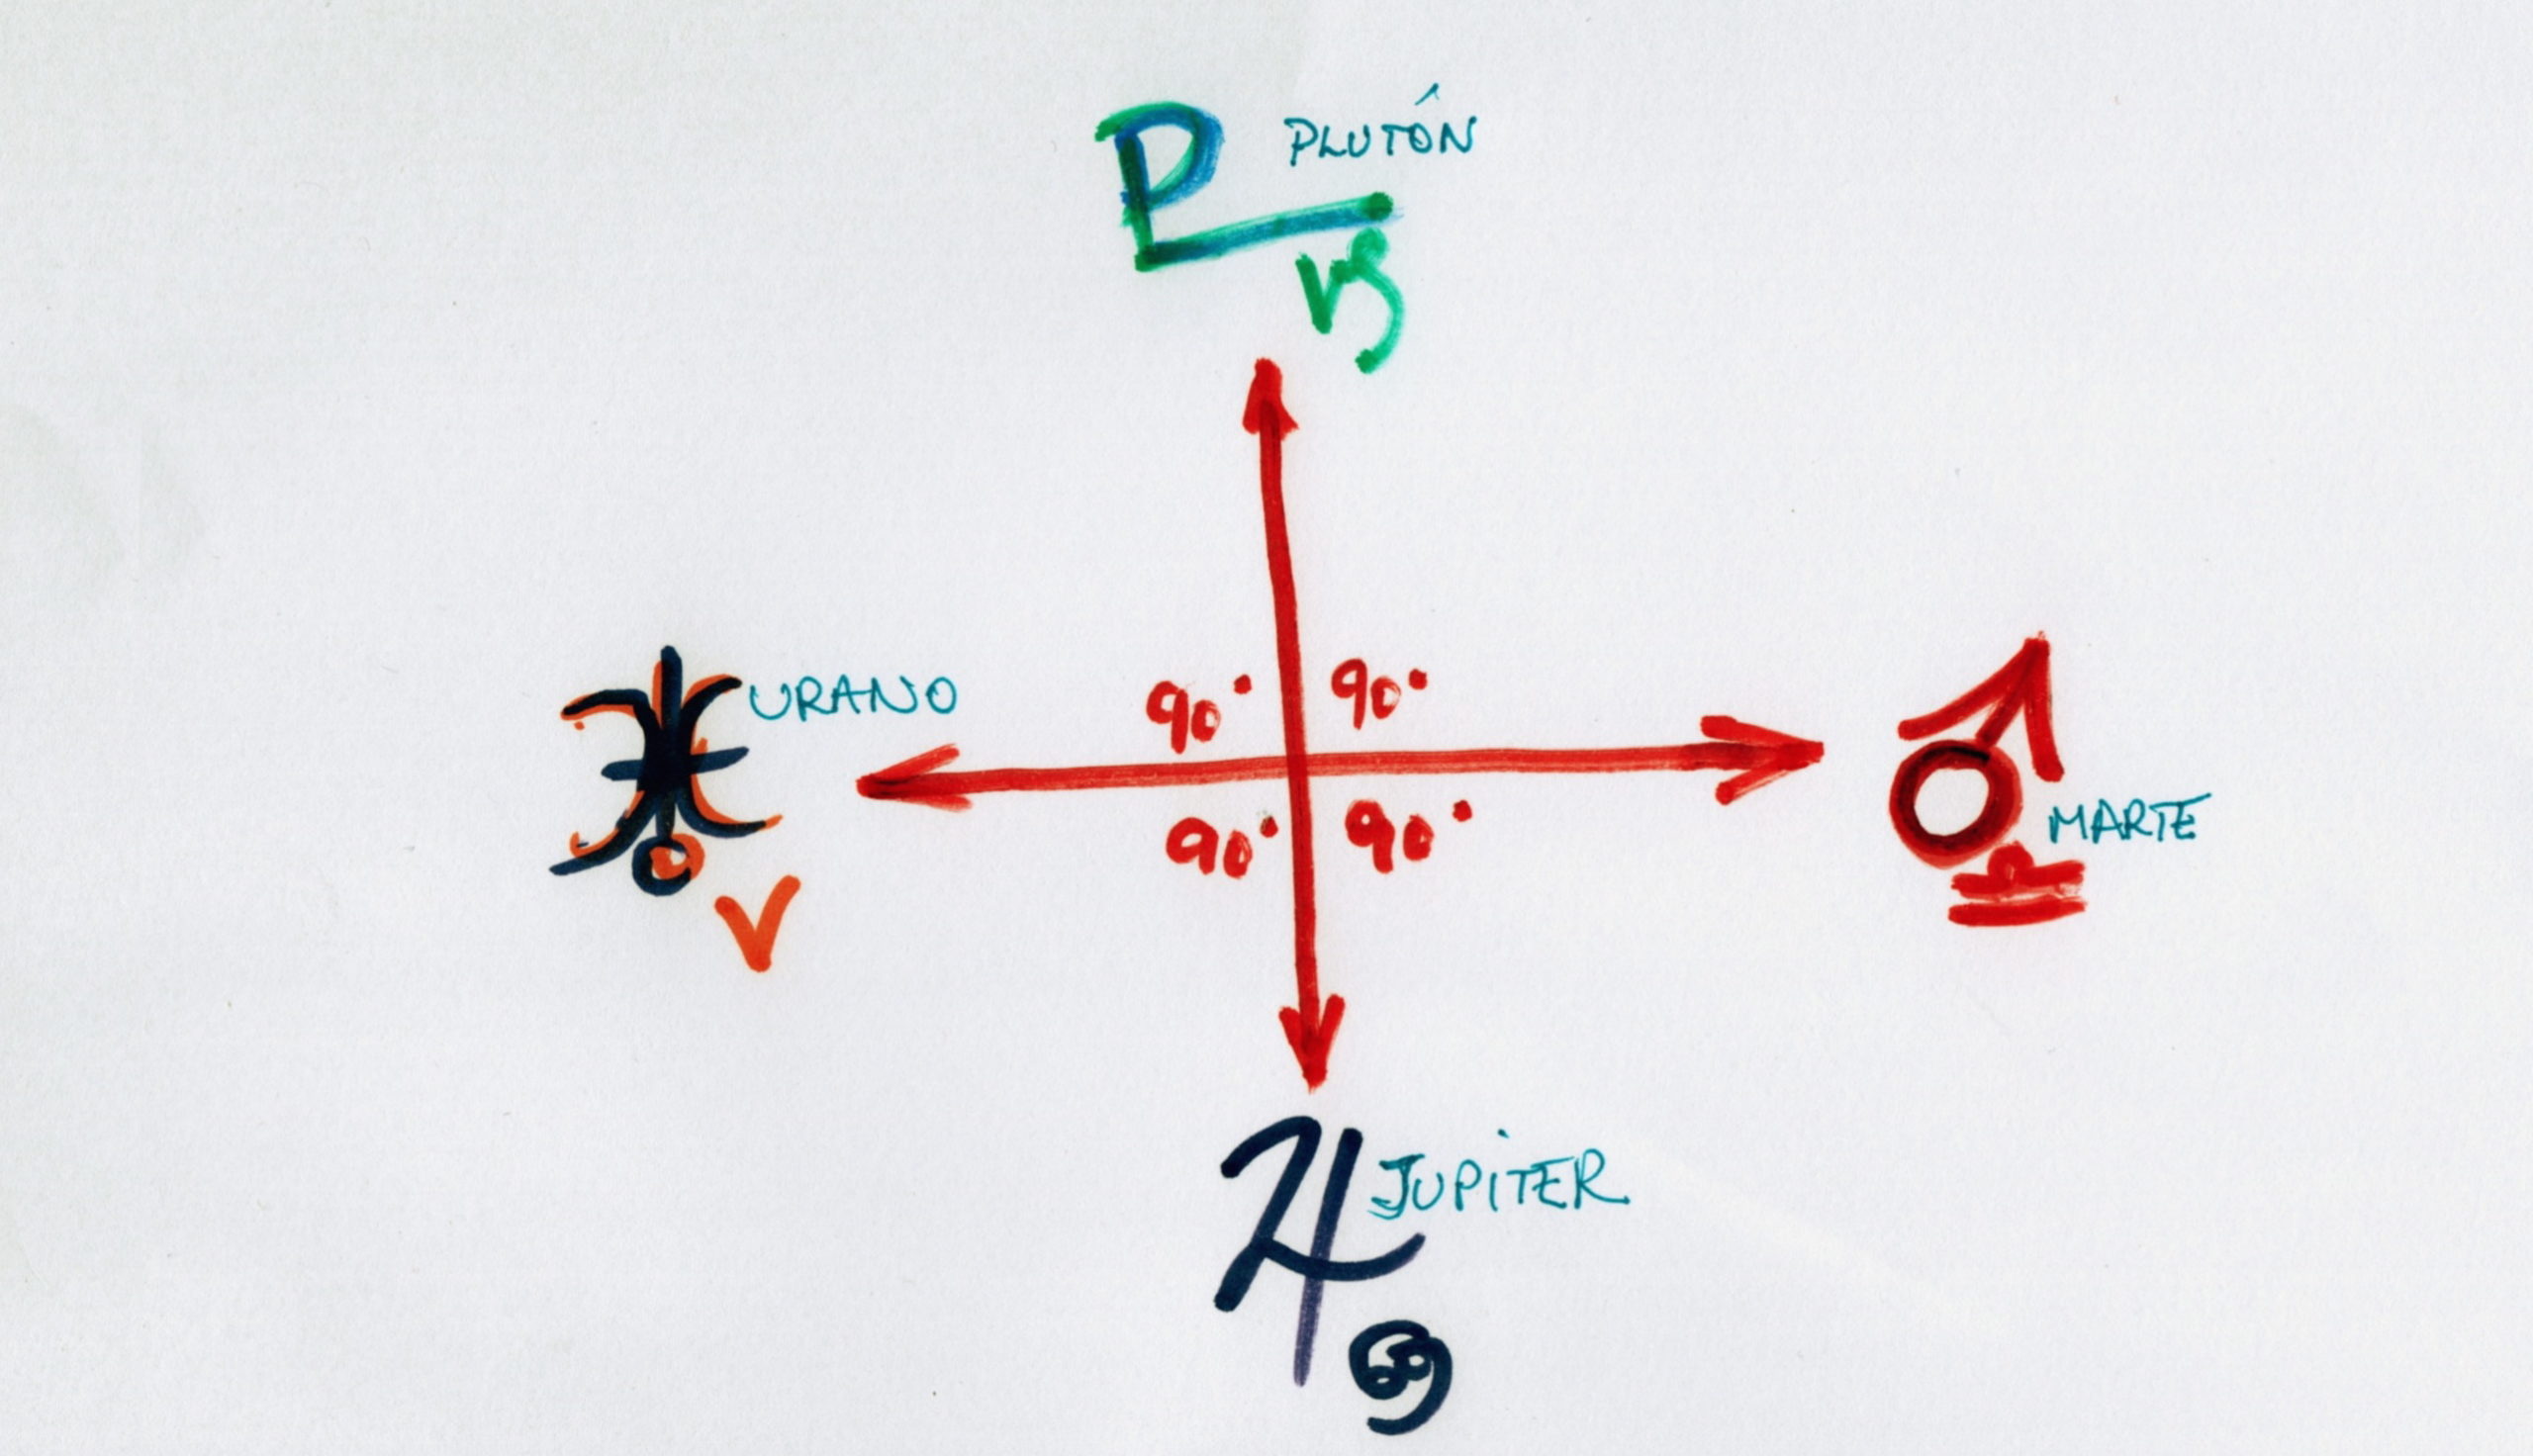 PLUTÓN
URANO
90° 90°
90° 90°
MARTE
JUPITER